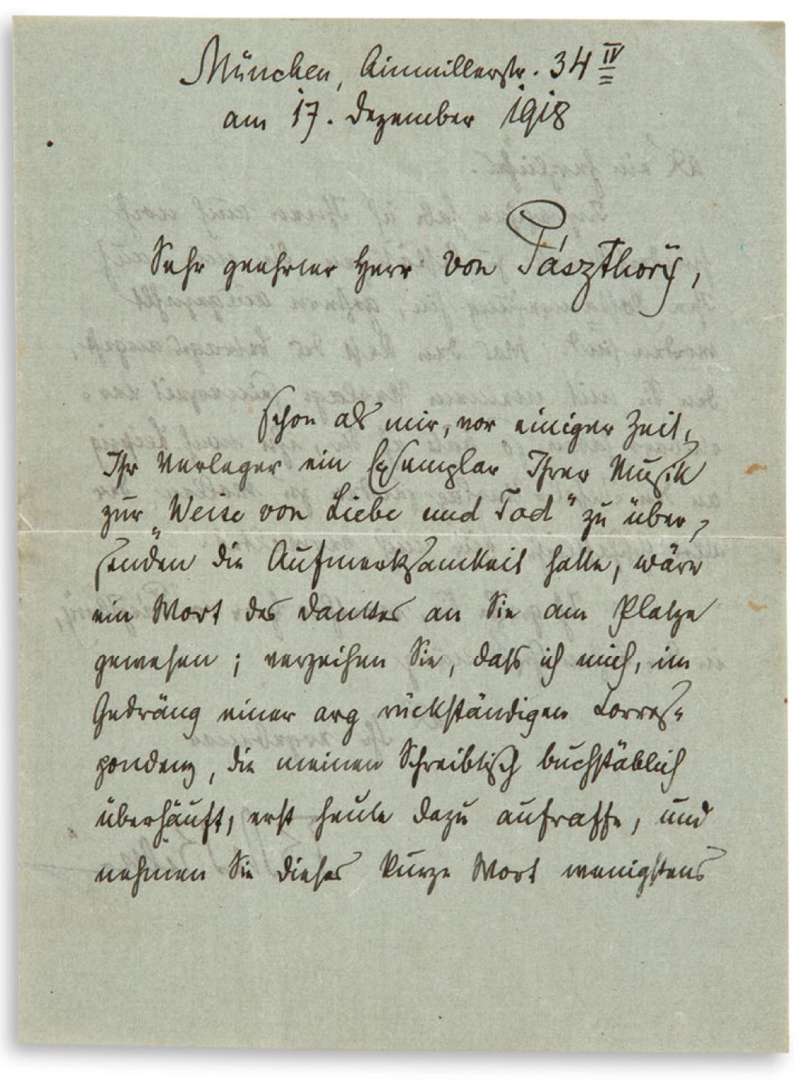 München, Ainmillerstr. 34 IV
am 17. Dezember 1918
Sehr geehrter Herr von Pászthory,
schon als mir, vor einiger Zeit,
Ihr Verleger ein Exemplar Ihrer Musik
zur „Weise von Liebe und Tod" zu über-
senden die Aufmerksamkeit hatte, wäre
ein Wort des Dankes an Sie am Platze
gewesen; verzeihen Sie, dass ich mich, im
Gedräng einer arg rückständigen Corres-
pondenz, die meinen Schreibtisch buchstäblich
überhäuft, erst heute dazu aufraffe, und
nehmen Sie dieses kurze Wort wenigstens